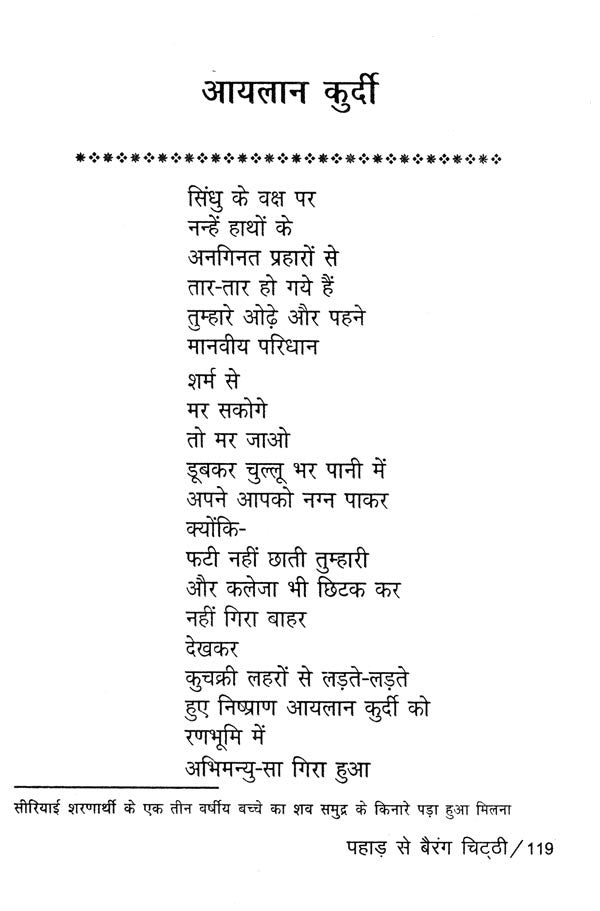 आयलान कुर्दी
सिंधु के वक्ष पर
नन्हें हाथों के
अनगिनत प्रहारों से
तार-तार हो गये हैं
तुम्हारे ओढ़े और पहने
मानवीय परिधान
शर्म से
मर सकोगे
तो मर जाओ
डूबकर चुल्लू भर पानी में
अपने आपको नग्न पाकर
क्योंकि-
फटी नहीं छाती तुम्हारी
और कलेजा भी छिटक कर
नहीं गिरा बाहर
देखकर
कुचक्री लहरों से लड़ते-लड़ते
हुए निष्प्राण आयलान कुर्दी को
रणभूमि में
अभिमन्यु-सा गिरा हुआ
सीरियाई शरणार्थी के एक तीन वर्षीय बच्चे का शव समुद्र के किनारे पड़ा हुआ मिलना
पहाड़ से बैरंग चिट्ठी/119